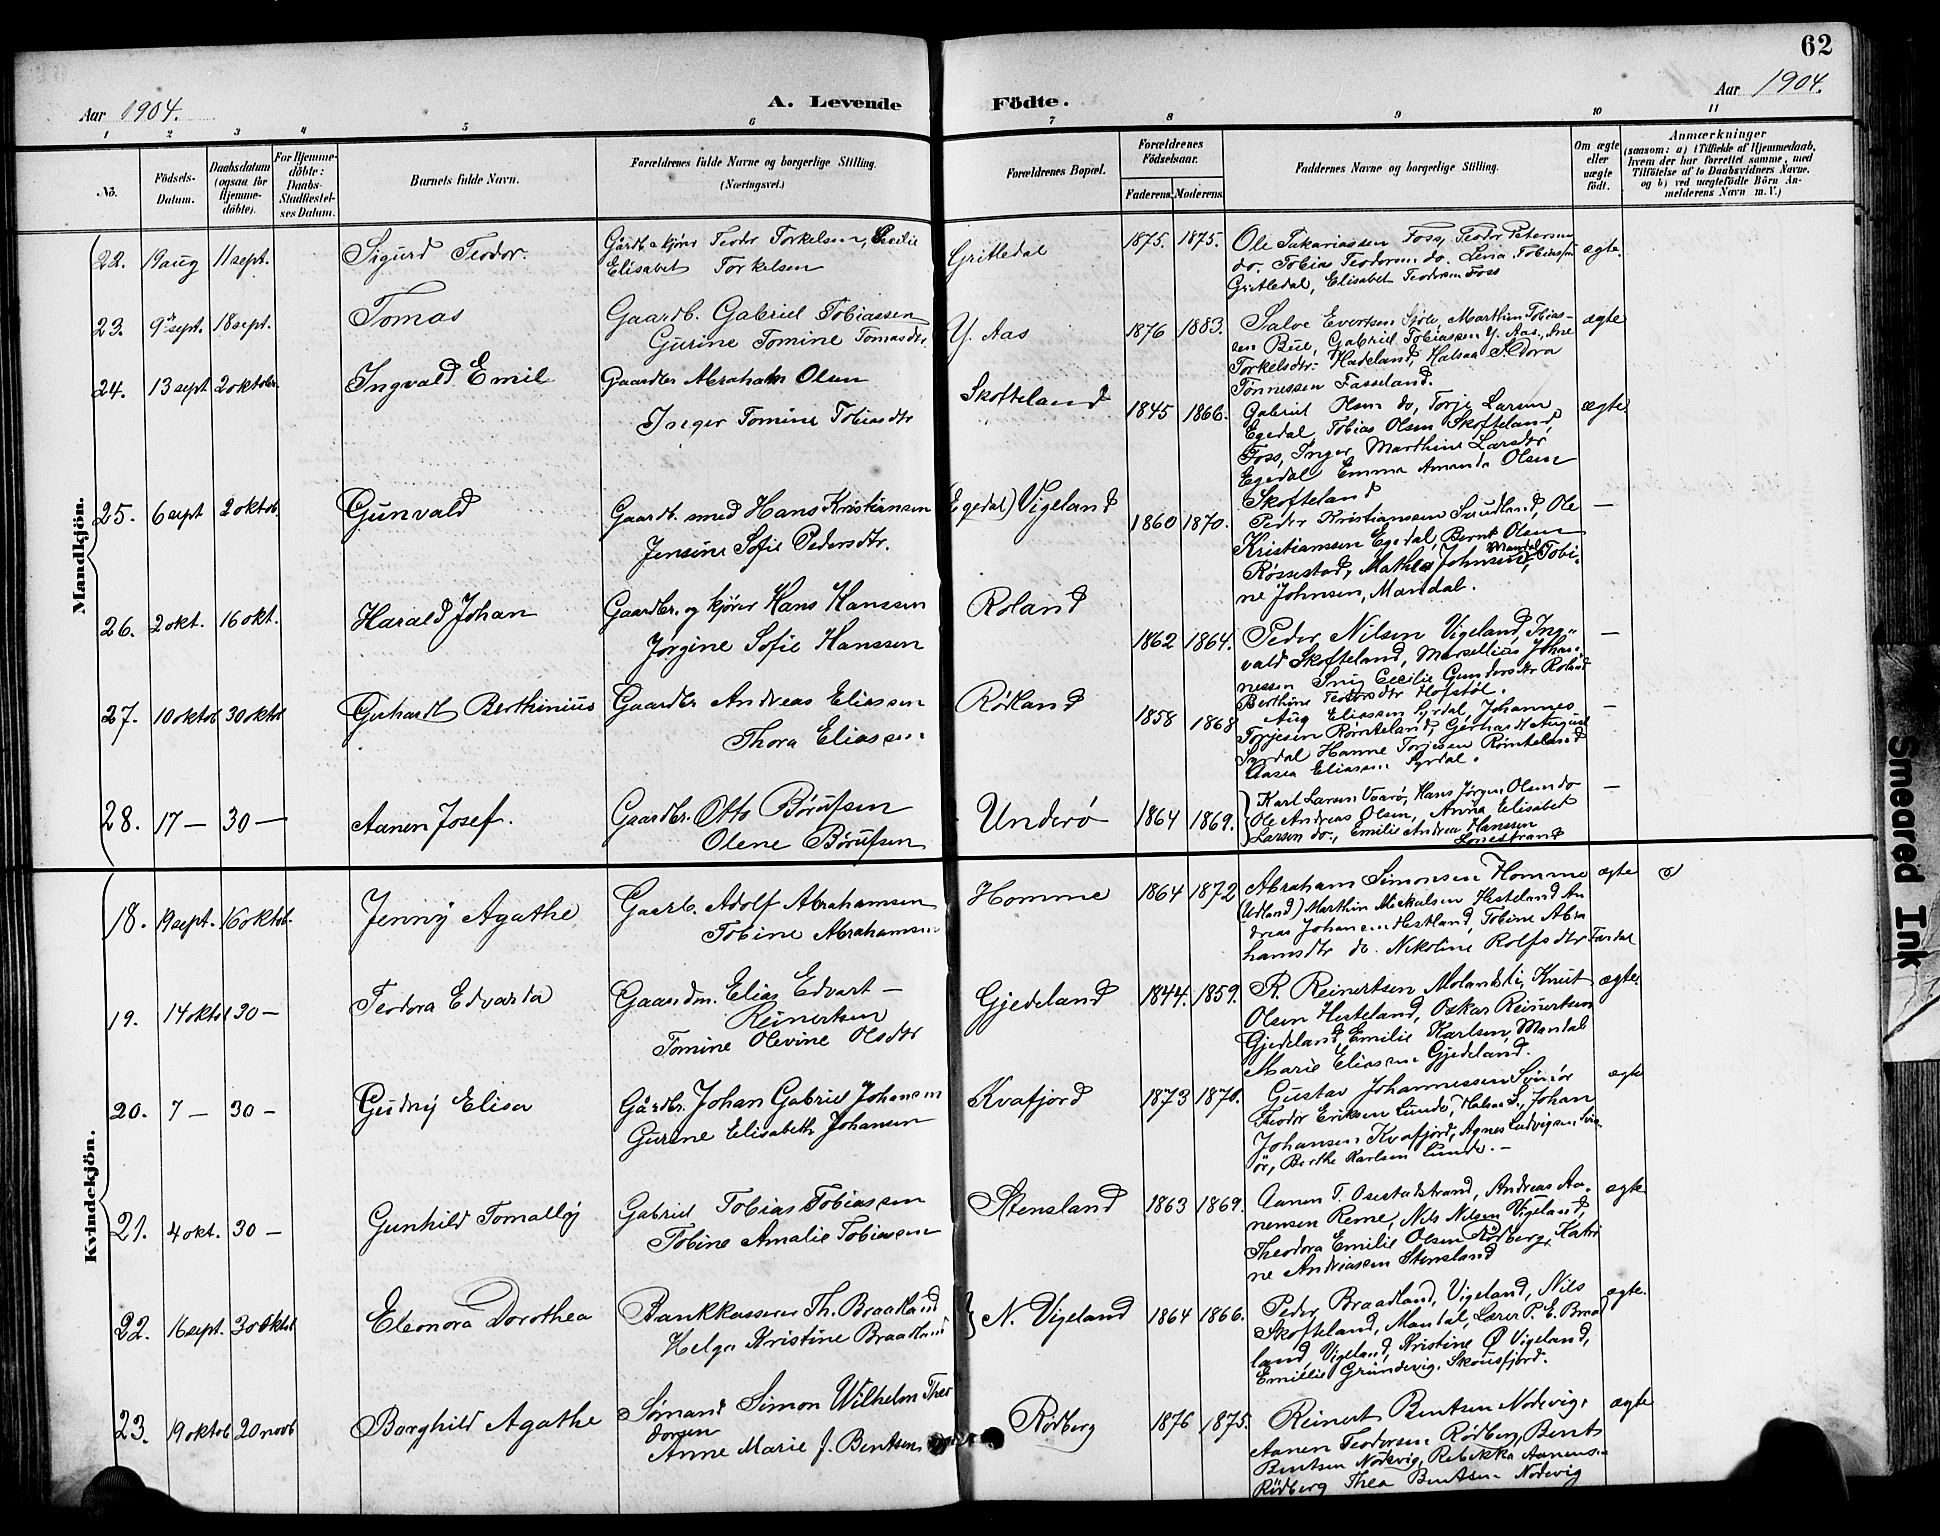 62
Aar 1904.
A. Levende Födte.
Aar 1904.
1 2 3 4 5 6 7 8 9 10 11
No.
Födsels-Datum.
Daabsdatum (ogsaa for Hjemme-döbte).
For Hjemme-döbte: Daabs-Stadfæstel-ses Datum.
Barnets fulde Navn.
Forældrenes fulde Navne og borgerlige Stilling.
(Næringsvei.)
Forældrenes Bopæl.
Forældrenes Födselsaar.
Faderens. Moderens.
Faddernes Navne og borgerlige Stilling.
Om ægte eller uægte födt.
Anmærkninger
(saasom: a) i Tilfælde af Hjemmedaab,
hvem der har forrettet samme, med
Tilföielse af to Daabsvidners Navne.
og b) ved uægtefödte Börn An-
melderens Navn m. V.)
Mandkjön.
22. 19 aug 11 sept. Sigurd Teodor. Gårdb. skjöner Teodor Torkelsen, Cecilie
Elisabet Torkelsen
Gritledal 1875. 1875. Ole Sakariassen Foss, Teodor Petersen
do. Tobias Teodorsen do. Lena Tobiassen
Gritledal, Elisabet Teodorsen Foss
ægte.
23. 9 sept. 18 sept. Tomas Gaardb. Gabriel Tobiassen
Gurine Tomine Tomasdtr.
Y. Aas 1876 1883. Salve Evertsen Spile, Marthin Tobias-
sen Bue, Gabriel Tobiassen Y. Aas, Ane
Torkelsdtr. Hadeland, Halsaa Sdora
Tønnessen Fasseland.
ægte
24. 13 sept 2 oktobr. Ingvald Emil Gaardbr Abraham Olsen
Inger Tomine Tobiasdtr
Skofteland 1845 1866. Gabriel Olsen do, Torje Larsen
Egedal, Tobias Olsen Skofteland,
Foss, Inger Marthine Larsdtr
Egedal Emma Amanda Olsen
Skofteland
ægte
25. 6 sept 2 oktob. Gunvald Gaardb. smed Hans Kristiansen
Jensine Sofie Pedersdtr.
(Egedal) Vigeland 1860 1870. Peder Kristianssen Sundland, Ole
Kristianssen Egedal, Bernt Olsen
Røssestad, Mathea Johnsen, Mandal, Tobi-
ne Johnsen, Mandal.
—
26. 2 okt. 16 okt. Harald Johan Gaardbr. og kjører Hans Hanssen
Jørgine Sofie Hanssen
Roland 1862 1864. Peder Nilsen Vigeland, Ing-
vald Skofteland, Marsellius Johan-
nessen Snig Cecilie Gundersdtr Roland
Berthine Teodorsdtr Hofstøl.
—
27. 10 oktob 30 oktob Gerhardt Berthinius Gaardbr Andreas Eliassen
Thora Eliassen
Røiland 1858 1868 Aug Eliassen Syrdal, Johannes
Torjesen Rømteland, Gerhardt August
Syrdal Hanne Torjesen Rømteland
Aasea Eliassen Syrdal.
—
28. 17 — 30 — Aanen Josef. Gaardbr. Otto Börufsen
Olene Börufsen
Underö 1864 1869. Karl Larsen Vaarö, Hans Jörgen Olsen do
Ole Andreas Olsen, Anna Elisabet
Larsen do., Emilie Andrea Hanssen
Lonestrand
—
Kvindekjön.
18. 19 sept. 16 oktob. Jenny Agathe Gaarb. Adolf Abrahamsen
Tobine Abrahamsen
Homme 1864 1872 Abraham Simonsen Homme
(Udland) Marthin Mickalsen Hesteland An
dreas Johansen Hestland, Tobine Abra
hamsdtr do. Nikoline Rolfsdtr Fardal
ægte
19. 14 oktob 30 — Teodora Edvarda Gaardm. Elias Edvart —
Reinertsen
Tomine Olevine Olsdtr
Gjedeland 1844. 1859. R. Reinertsen Molandsli, Knut
Olsen Hesteland, Oskar Reinertsen
Gjedeland, Emilie Karlsen, Mandal
Marie Eliassen Gjedeland.
ægte.
20. 7 — 30 — Gudny Elisa Gårdbr. Johan Gabriel Johansen
Gurine Elisabeth Johansen
Kvafjord 1873 1870. Gustav Johannessen Svinör
Teodor Eriksen Lunde, Halsaa S., Johan
Johansen Kvafjord, Agnes Ludvigsen, Svin-
ör, Berthe Karlsen Lunde. —
ægte
21. 4 okt. 30 — Gunhild Tomally Gabriel Tobias Tobiassen
Tobine Amalie Tobiassen
Stensland 1863 1869. Aanen T. Osestadstrand, Andreas Aa-
nensen Reme, Nils Nilsen Vigeland,
Theodora Emilie Olsen Rödberg, Katri
ne Andreassen Stensland
ægte
22. 16 sept. 30 oktob Eleonora Dorothea Bankkasserer Th. Braadland
Helga Kristine Braadland
N. Vigeland 1864 1866. Peder Braadland, Vigeland, Nils
Skofteland, Mandal, Lærer P. E. Braad
land, Vigeland, Kristine Ø Vigeland,
Emilie Grundevig, Skousfjord.
ægte.
23. 19 oktob 20 novb Borghild Agathe Sømand Simon Wilhelm Theo
dorsen
Anne Marie J. Bentsen
Rödberg 1876 1875. Reinert Bentsen Nodevig,
Aanen Teodorsen Rödberg, Bent
Bentsen Nodevig, Rebekka Aanensen
Rödberg Thea Bentsen Nodevig
ægte
Smeared Ink